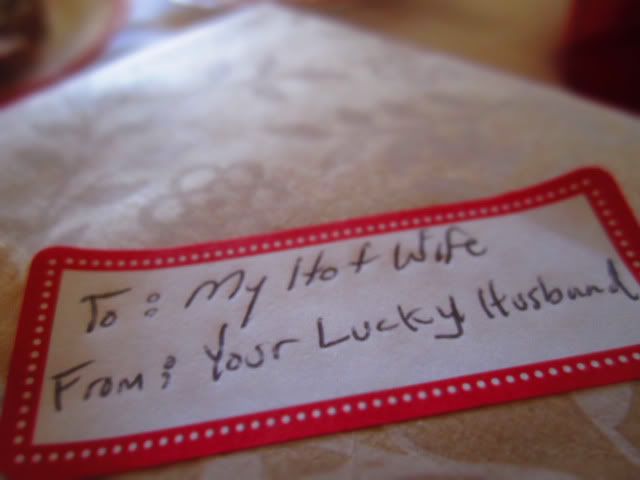 To: My Hot Wife
From: Your Lucky Husband